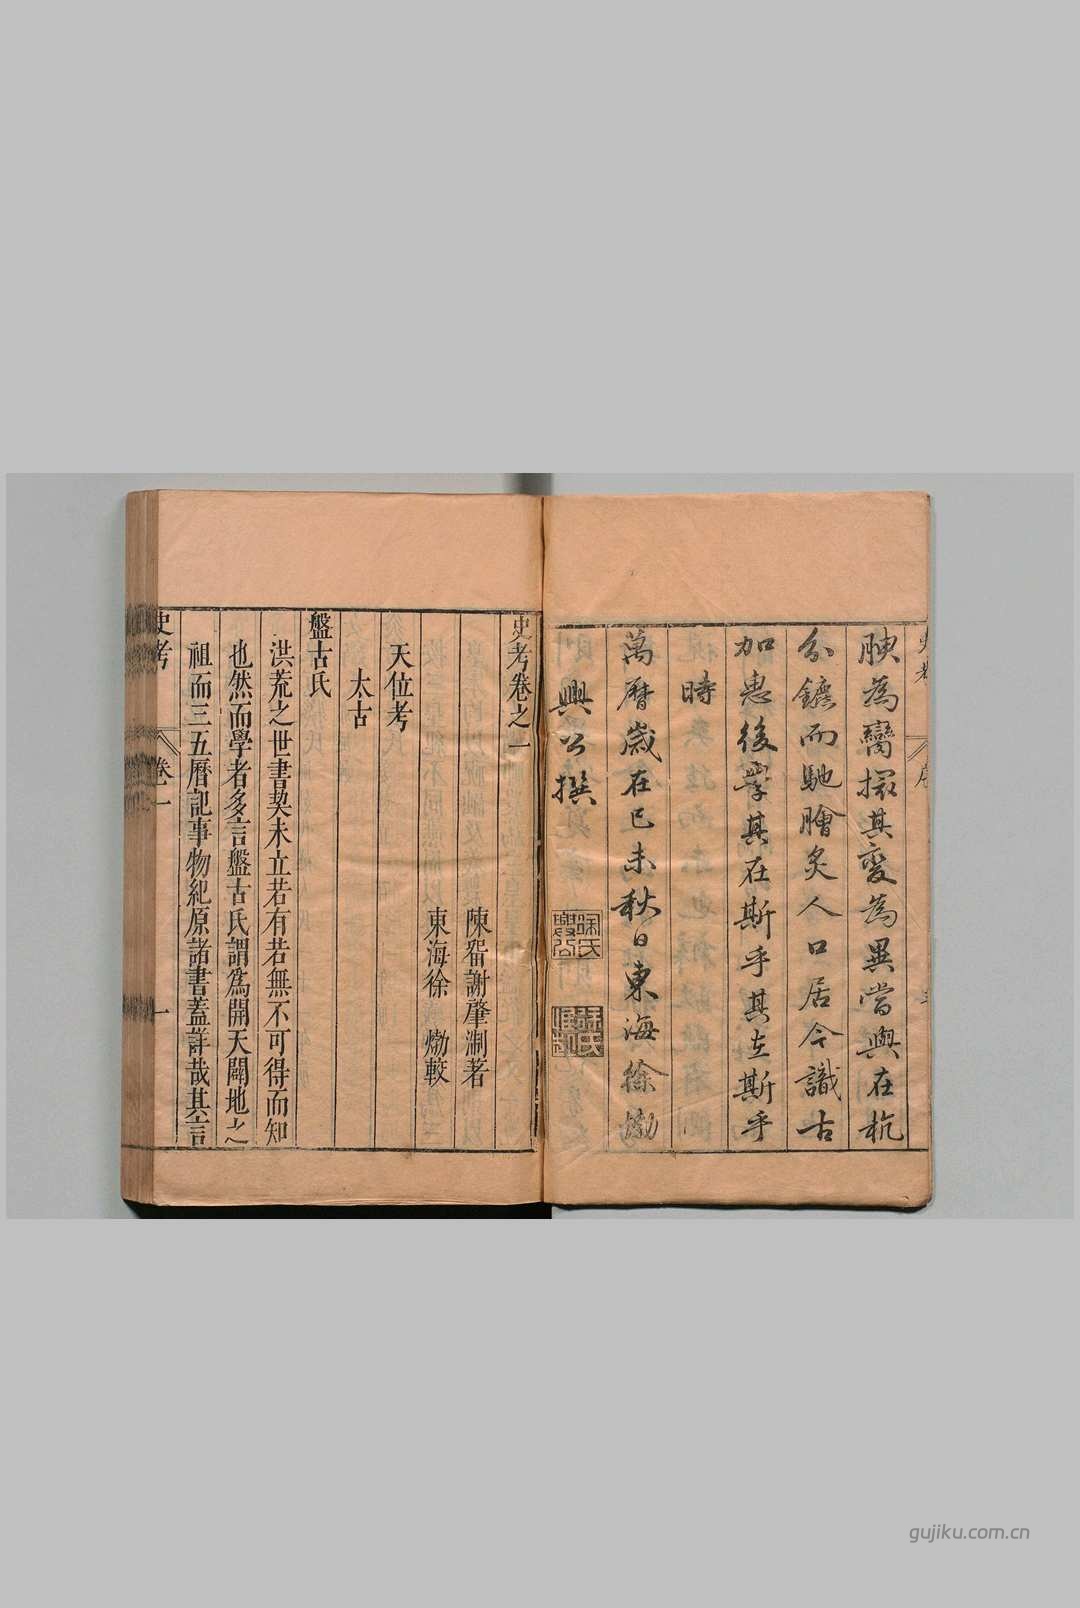 腴為臠掇其變為異嘗與在杭
分鑣而馳膾炙人口居今識古
加惠後學其在斯乎其在斯乎
時
萬曆歲在己未秋日東海徐𤊹
興公撰
徐氏
興公
史考卷之一
陳留謝肇淛著
東海徐𤊹較
天位考
太古
盤古氏
洪荒之世書契未立若有若無不可得而知
也然而學者多言盤古氏謂為開天闢地之
祖而三五曆記事物紀原諸書蓋詳哉其言
史考
卷一
一
gujiku.com.cn